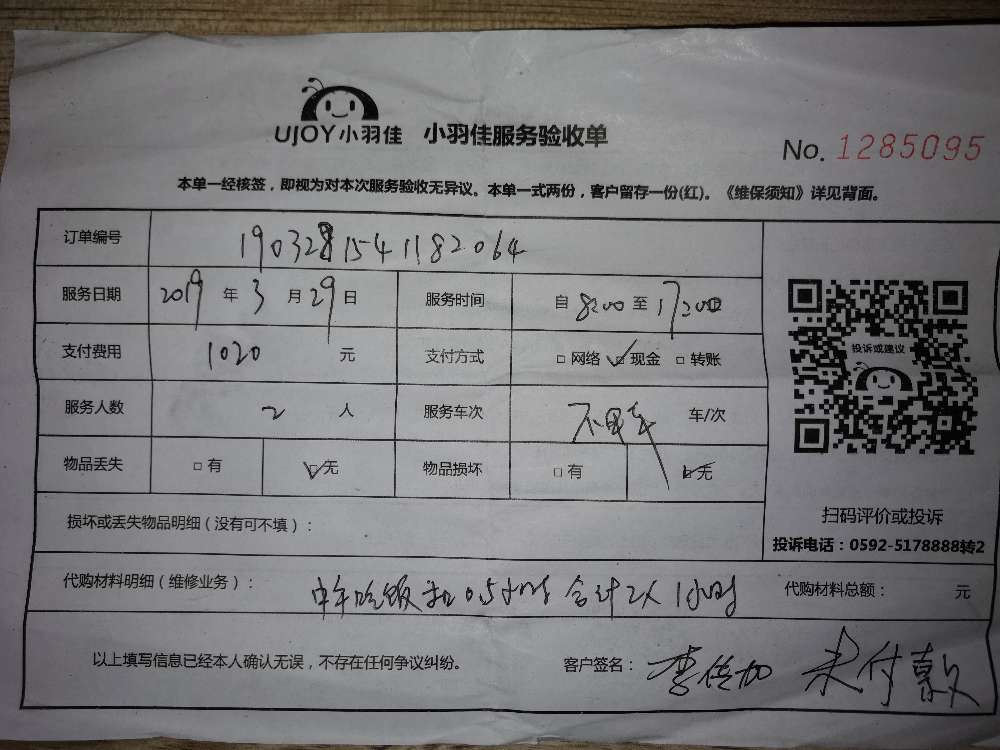 UJOY小羽佳 小羽佳服务验收单
No. 1285095
本单一经核签，即视为对本次服务验收无异议。本单一式两份，客户留存一份(红)。《维保须知》详见背面。
订单编号 1903281541182064
服务日期 2019 年 3 月 29 日 服务时间 自 8:00 至 17:00
支付费用 1020 元 支付方式 □ 网络 ☑ 现金 □ 转账
服务人数 2 人 服务车次 不用车 车/次
物品丢失 □ 有 ☑ 无 物品损坏 □ 有 ☑ 无
投诉或建议
扫码评价或投诉
投诉电话：0592-5178888转2
损坏或丢失物品明细（没有可不填）：
代购材料明细（维修业务）： 中午吃饭 0.5小时 合计2人1小时 代购材料总额： 元
以上填写信息已经本人确认无误，不存在任何争议纠纷。 客户签名： 李 加 未付款